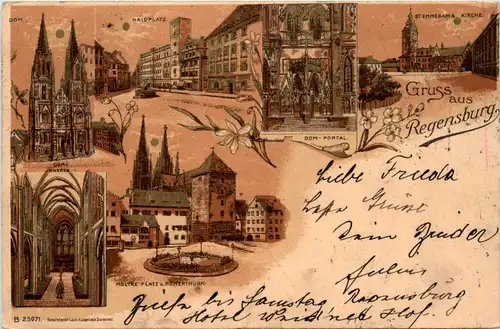 DOM.
HAIDPLATZ.
ST. EMMERAMS KIRCHE.
Gruss
aus
Regensburg.
DOM-PORTAL.
DOM-
INNERES
MOLTKE-PLATZ U. RÖMERTHURM.
Liebe Frieda
Beste Grüsse
Dein Bruder
Julius
bis Samstag Regensburg
Hotel Weidner Hof.
B 25071.